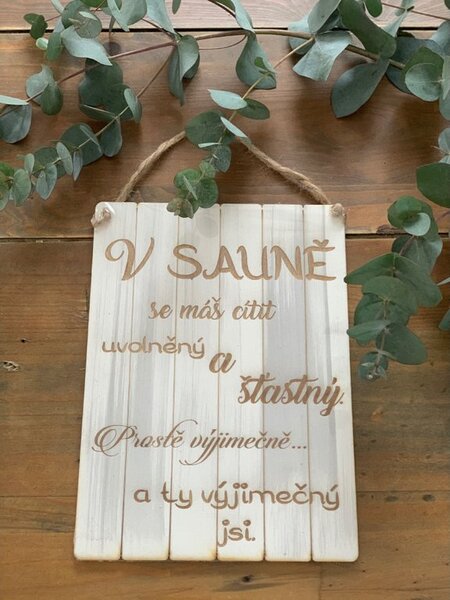 V SAUNĚ
se máš cítit
uvolněný a
šťastný.
Prostě výjimečně...
a ty výjimečný
jsi.